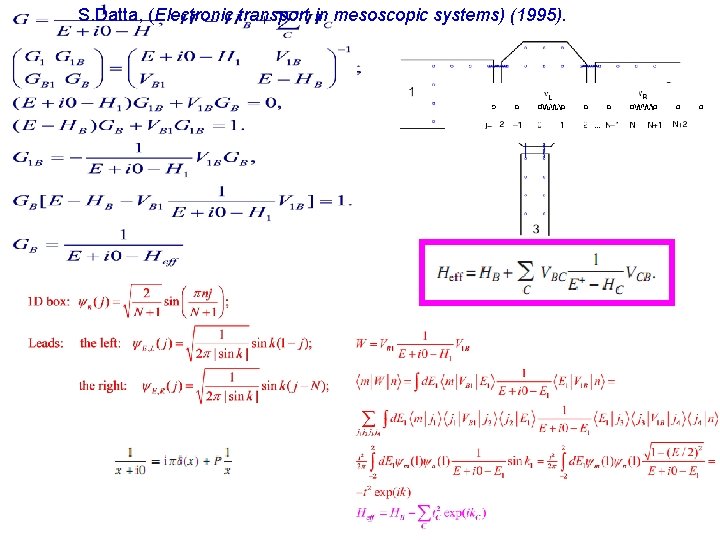 S.Datta, (Electronic transport in mesoscopic systems) (1995).
G = 1 / (E + i0 − H)
( G_1 G_{1B} ; G_{B1} G_B ) = ( E + i0 − H_1 V_{1B} ; V_{B1} E − H_B )^{−1} ;
(E + i0 − H_1)G_{1B} + V_{1B}G_B = 0,
(E − H_B)G_B + V_{B1}G_{1B} = 1.
G_{1B} = − 1 / (E + i0 − H_1) V_{1B}G_B,
G_B[E − H_B − V_{B1} 1 / (E + i0 − H_1) V_{1B}] = 1.
G_B = 1 / (E + i0 − H_{eff})
1
v_L v_R
j= 2 −1 1 2 ... N−1 N N+1 N+2
3
H_{eff} = H_B + ∑_C V_{BC} 1 / (E^+ − H_C) V_{CB}.
1D box: ψ_n(j) = √(2 / (N+1)) sin(πnj / (N+1));
Leads: the left: ψ_{E,L}(j) = √(1 / (2π|sin k|)) sin k(1−j);
the right: ψ_{E,R}(j) = √(1 / (2π|sin k|)) sin k(j−N);
1 / (x + i0) = iπδ(x) + P 1/x
W = V_{B1} 1 / (E + i0 − H_1) V_{1B}
⟨m|W|n⟩ = ∫dE_1⟨m|V_{B1}|E_1⟩ 1 / (E + i0 − E_1) ⟨E_1|V_{1B}|n⟩ =
∑_{j_1j_2j_3j_4} ∫dE_1⟨m|j_1⟩⟨j_1|V_{B1}|j_2⟩⟨j_2|E_1⟩ 1 / (E + i0 − E_1) ⟨E_1|j_3⟩⟨j_3|V_{1B}|j_4⟩⟨j_4|n⟩
t²/2π ∫_{−2}^{2} dE_1ψ_m(1)ψ_n(1) 1 / (E + i0 − E_1) sin k_1 = t²/2π ∫_{−2}^{2} dE_1ψ_m(1)ψ_n(1) √(1−(E/2)²) / (E + i0 − E_1) =
−t² exp(ik)
H_{eff} = H_B − ∑_C t_C² exp(ik_C)